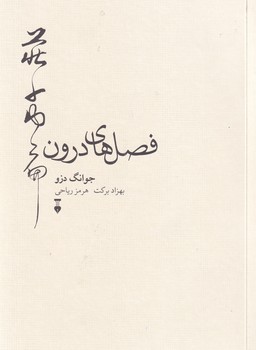 莊子
فصل‌های درون
جوانگ دزو
بهزاد برکت هرمز ریاحی